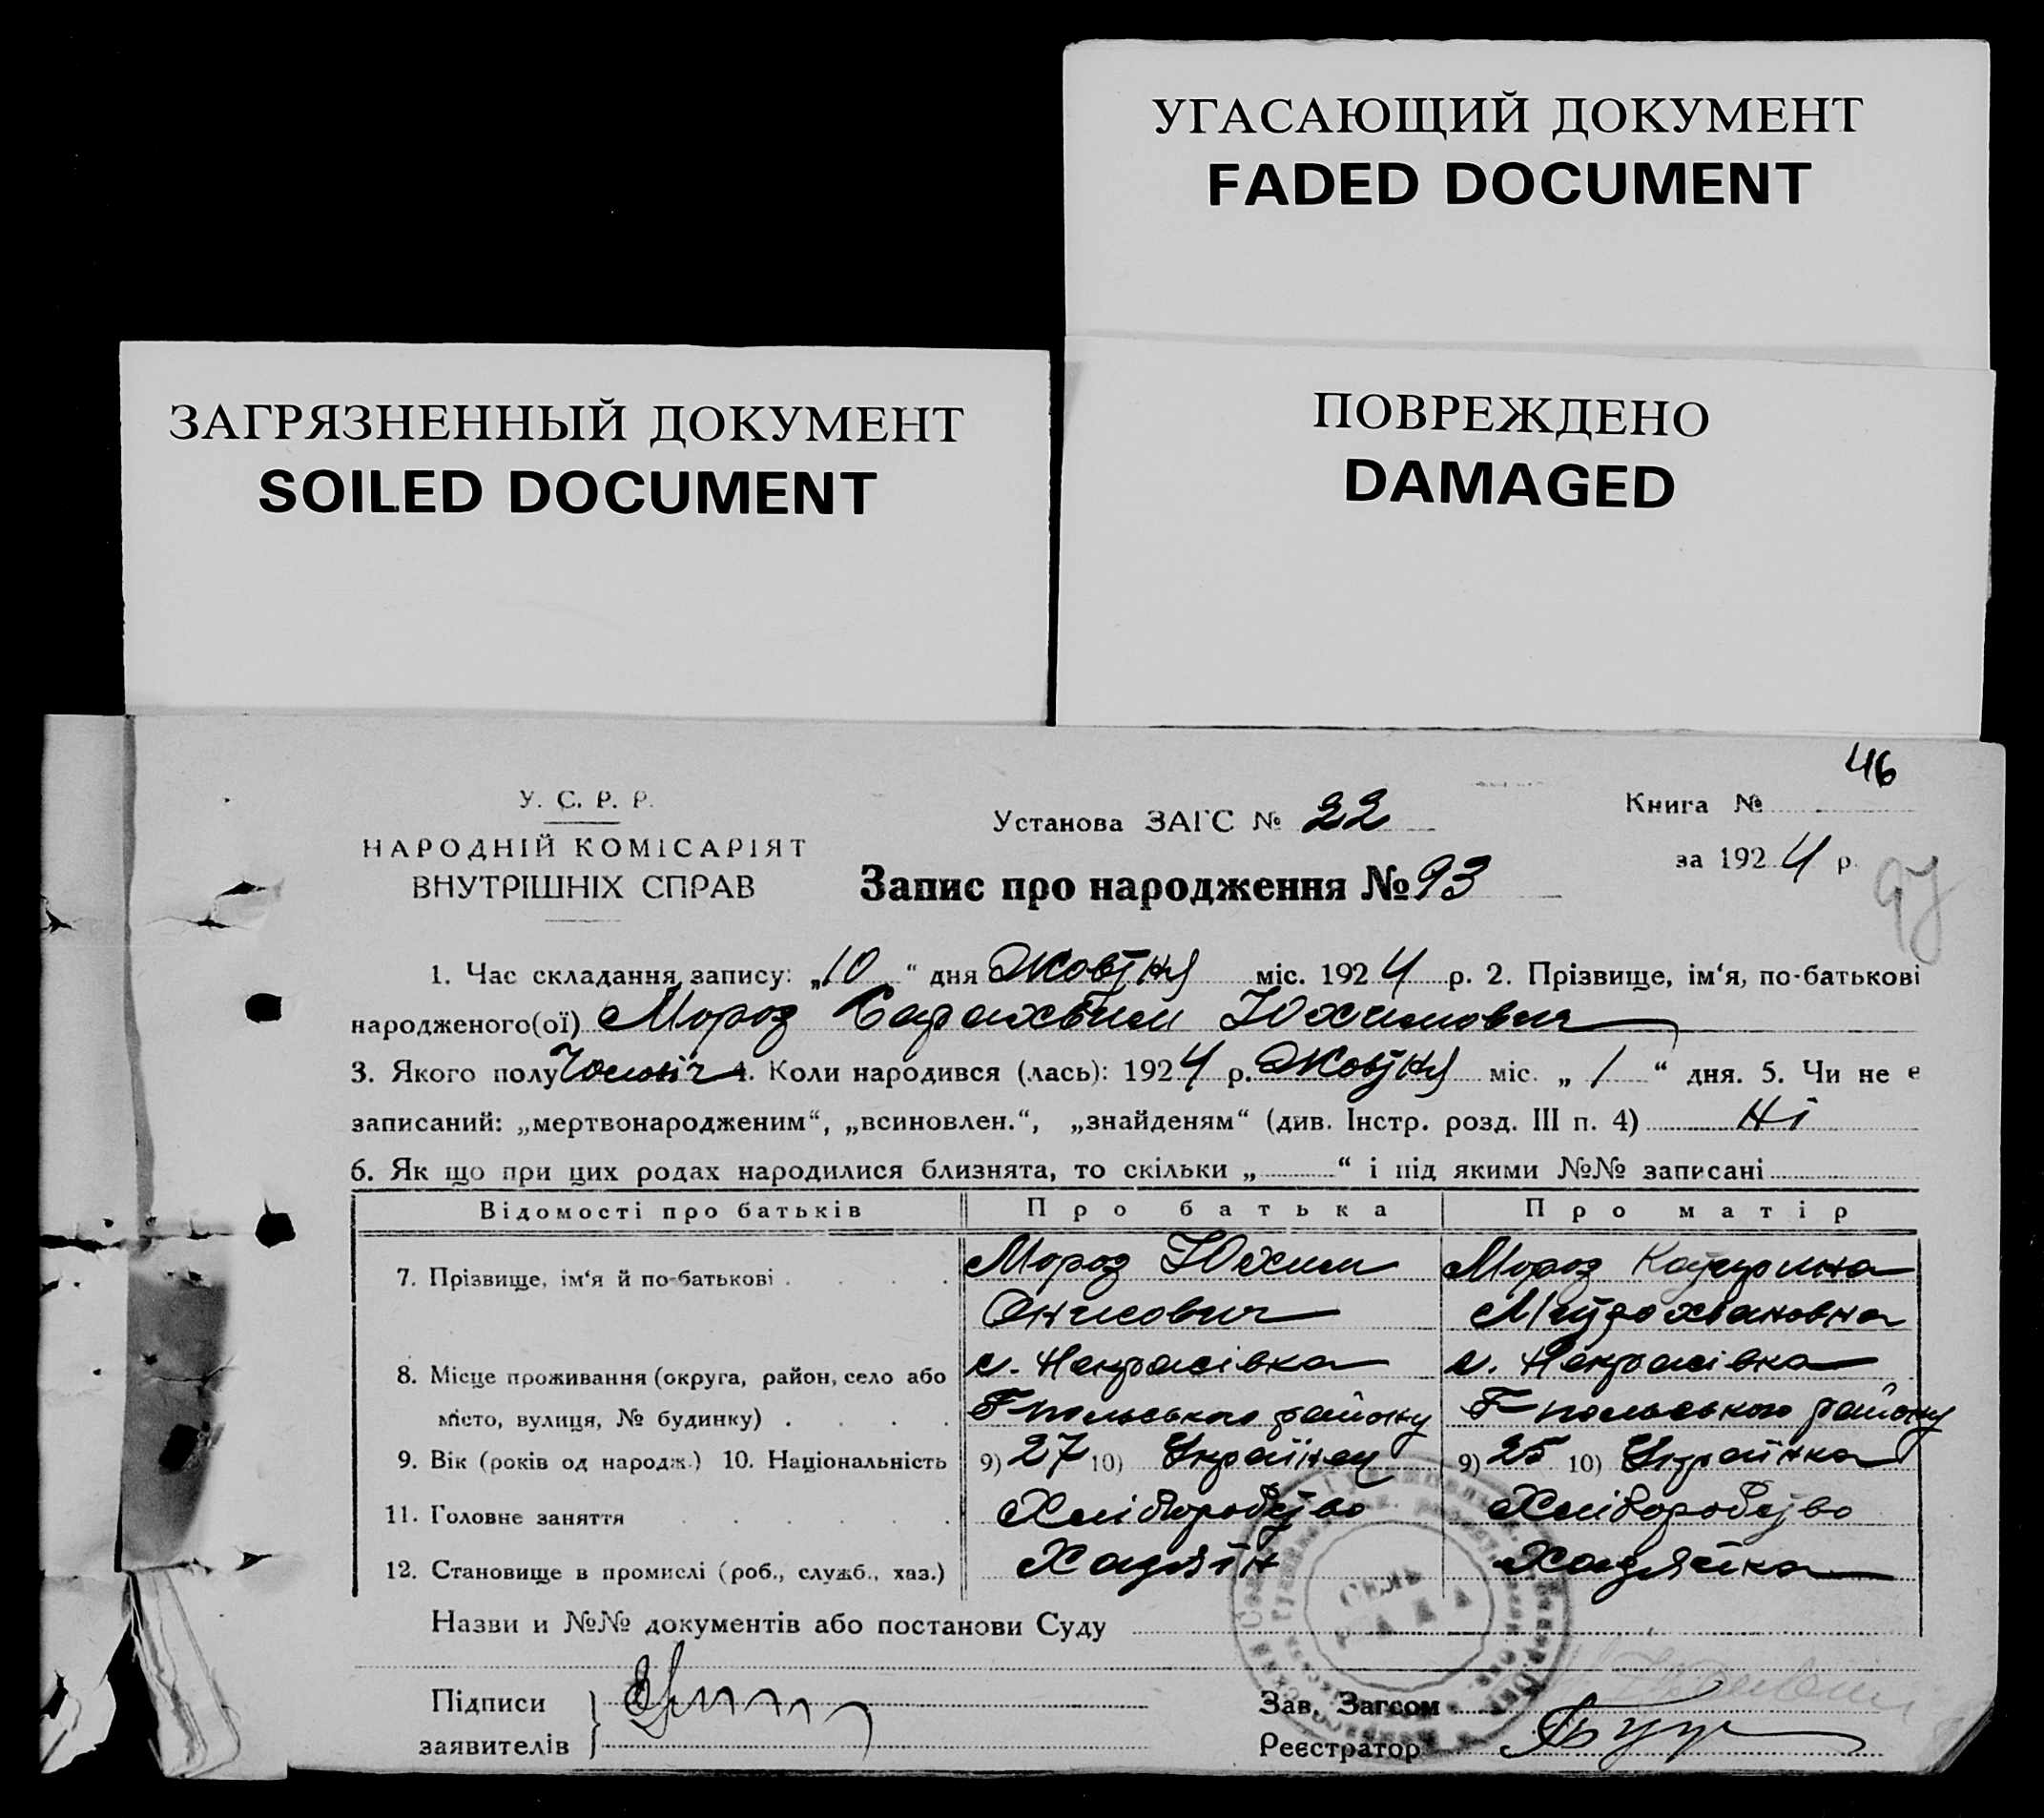 УГАСАЮЩИЙ ДОКУМЕНТ
FADED DOCUMENT
ЗАГРЯЗНЕННЫЙ ДОКУМЕНТ
SOILED DOCUMENT
ПОВРЕЖДЕНО
DAMAGED
46
У. С. Р. Р.
НАРОДНІЙ КОМІСАРІЯТ
ВНУТРІШНІХ СПРАВ
Установа ЗАГС № 22
Запис про народження № 93
Книга №
за 1924 р.
97
1. Час складання запису: „10“ дня Жовтня міс. 1924 р. 2. Прізвище, ім‘я, по-батькові
народженого(ої) Мороз Юхимович
3. Якого полу Чоловіч 4. Коли народився (лась): 1924 р. Жовтня міс. „1“ дня. 5. Чи не є
записаний: „мертвонародженим“, „всиновлен.“, „знайденям“ (див. Інстр. розд. III п. 4) Ні
6. Як що при цих родах народилися близнята, то скільки „ “ і під якими №№ записані
Відомості про батьків Про батька Про матір
7. Прізвище, ім‘я й по-батькові Мороз Юхим Мороз Катерина
Митрохвановна
8. Місце проживання (округа, район, село або с. Некрасівка с. Некрасівка
місто, вулиця, № будинку) Г-польського району Г-польського району
9. Вік (років од народж.) 10. Національність 9) 27 10) Українец 9) 25 10) Українка
11. Головне заняття Хліборобство Хліборобство
12. Становище в промислі (роб., служб., хаз.) Хазяїн Хазяйка
Назви и №№ документів або постанови Суду
СЕЛЬ
РАДА
Підписи
заявителів
Зав. Загсом
Реєстратор